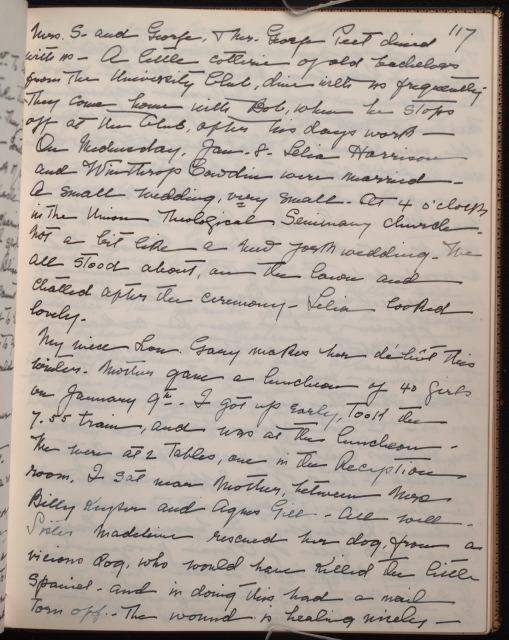 117
Mrs. S- and George, & Mr. George Peet dined
with us - A little coterie of old bachelors
from the University Club, dine with us frequently.
They come home with Bob, when he stops
off at the Club, after his days work -
On Wednesday, Jan. 8. Lelia Harrison
and Winthrop Cowdin were married -
A small wedding, very small - At 4 o'clock
in the Union Theological Seminary church -
not a bit like a New York wedding. We
all stood about, on the lawn and
chatted after the ceremony - Lelia looked
lovely.
My niece Lou. Gary makes her début this
winter. Mother gave a luncheon of 40 girls
on January 9th. I got up early, took the
7.55 train, and was at the luncheon -
We were at 2 tables, one in the Reception
room. I sat near Mother, between Mrs
Billy and Agnes Gill - All well -
Sister Madeline rescued her dog, from a
vicious dog, who would have killed the little
spaniel - and in doing this had a nail
torn off. The wound is healing nicely -